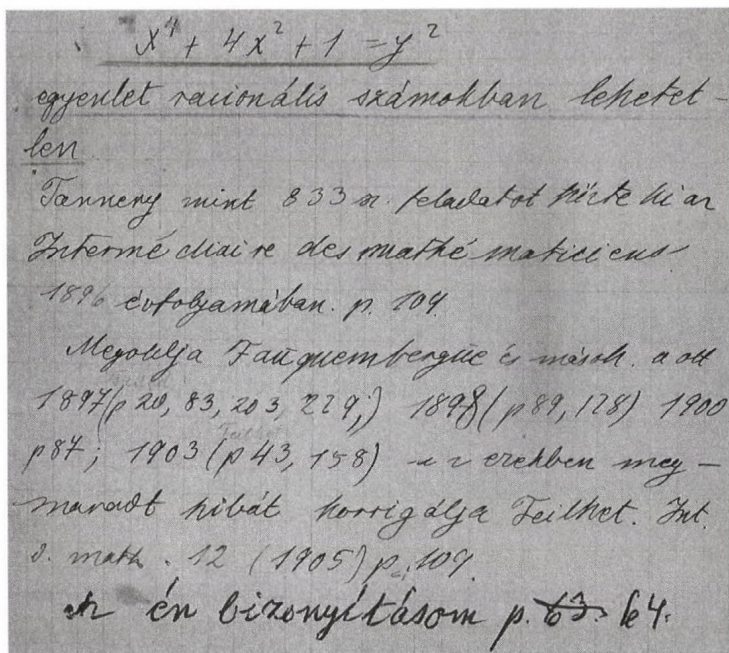 x⁴ + 4x² + 1 = y²
egyenlet racionális számokban lehetet-
len
Tannery mint 833 sz. feladatot tűzte ki az
Intermédiaire des mathématiciens
1896 évfolyamában. p. 109
Megoldja Fauquembergue és mások. a ott
1897 (p 20, 83, 203, 229;) 1898 (p 89, 128) 1900
p 87; 1903 (p 43, 158) ezekben meg-
maradt hibát korrigálja Teilhet. Int.
d. math. 12 (1905) p. 109.
Az én bizonyításom p. 63. 64.